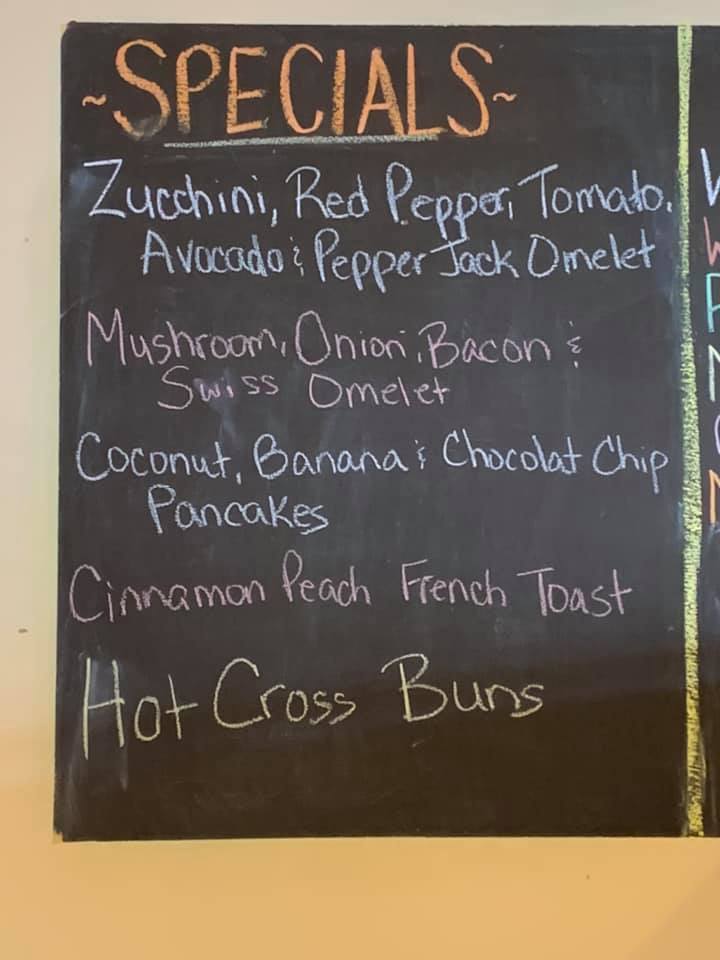 ~SPECIALS~
Zucchini, Red Pepper, Tomato,
Avocado & Pepper Jack Omelet
Mushroom, Onion, Bacon &
Swiss Omelet
Coconut, Banana & Chocolat Chip
Pancakes
Cinnamon Peach French Toast
Hot Cross Buns